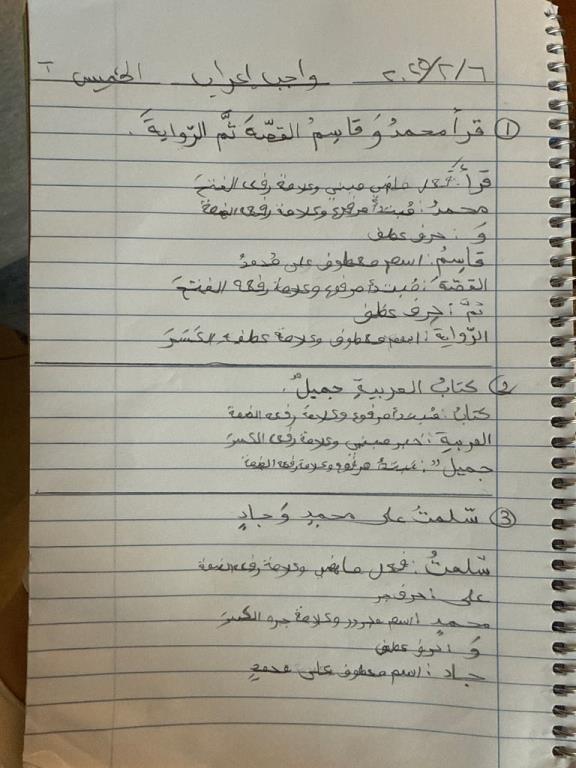 الخميس واجب إعراب ٢٠٢٥/٢/٦
① قرأ محمدُ وَ قاسِمُ القصّةَ ثمَّ الرّوايةَ.
قرأَ: فعل ماضي مبني وعلامة رفعه الفتح
محمدُ: مُبتدأ مرفوع وعلامة رفعه الضمة
وَ: حرف عطف
قاسِمُ: اسم معطوف على مُحمدُ
القصّةَ: مُبتدأ مرفوع وعلامة رفعه الفتحَ
ثمَّ: حرف عطف
الرّوايةَ: اسم معطوف وعلامة عطفه الكَسَرَ
② كتابُ العربيةِ جميلٌ.
كتابُ: مُبتدأ مرفوع وعلامة رفعه الضمة
العربيةِ: خبر مبني وعلامة رفعه الكسر
جميلٌ: مبتدأ مرفوع وعلامة رفعه الضمة
③ سّلمتُ على محمدٍ وَ جادٍ
سّلمتُ: فعل ماضي وعلامة رفعه الضمة
على: حرف جر
محمدٍ: اسم مجرور وعلامة جره الكسرَ
وَ: حرف عطف
جاد: اسم معطوف على محمدٍ